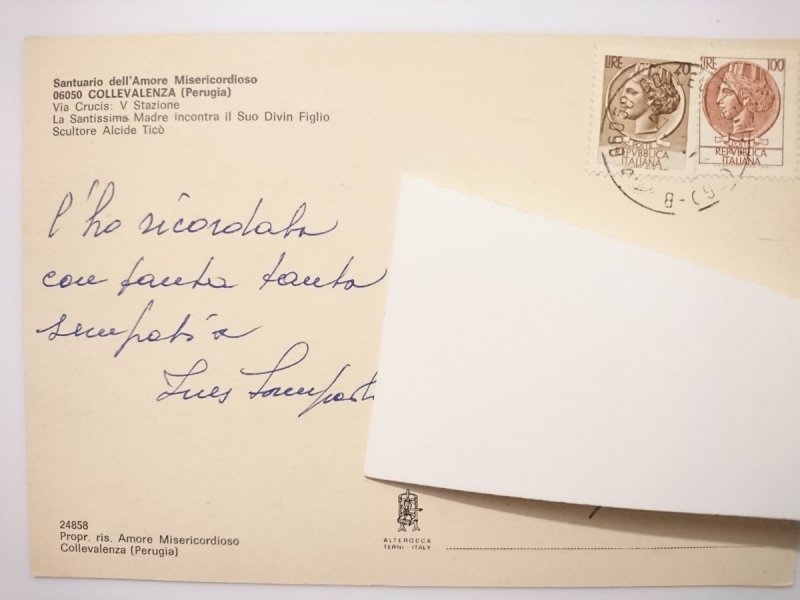 Santuario dell'Amore Misericordioso
06050 COLLEVALENZA (Perugia)
Via Crucis: V Stazione
La Santissima Madre incontra il Suo Divin Figlio
Scultore Alcide Ticò
LIRE 70
REPVBBLICA
ITALIANA
LIRE 100
REPVBBLICA
ITALIANA
l'ho ricordato
con tanta tanta
simpatia
Ines
24858
Propr. ris. Amore Misericordioso
Collevalenza (Perugia)
ALTEROCCA
TERNI - ITALY